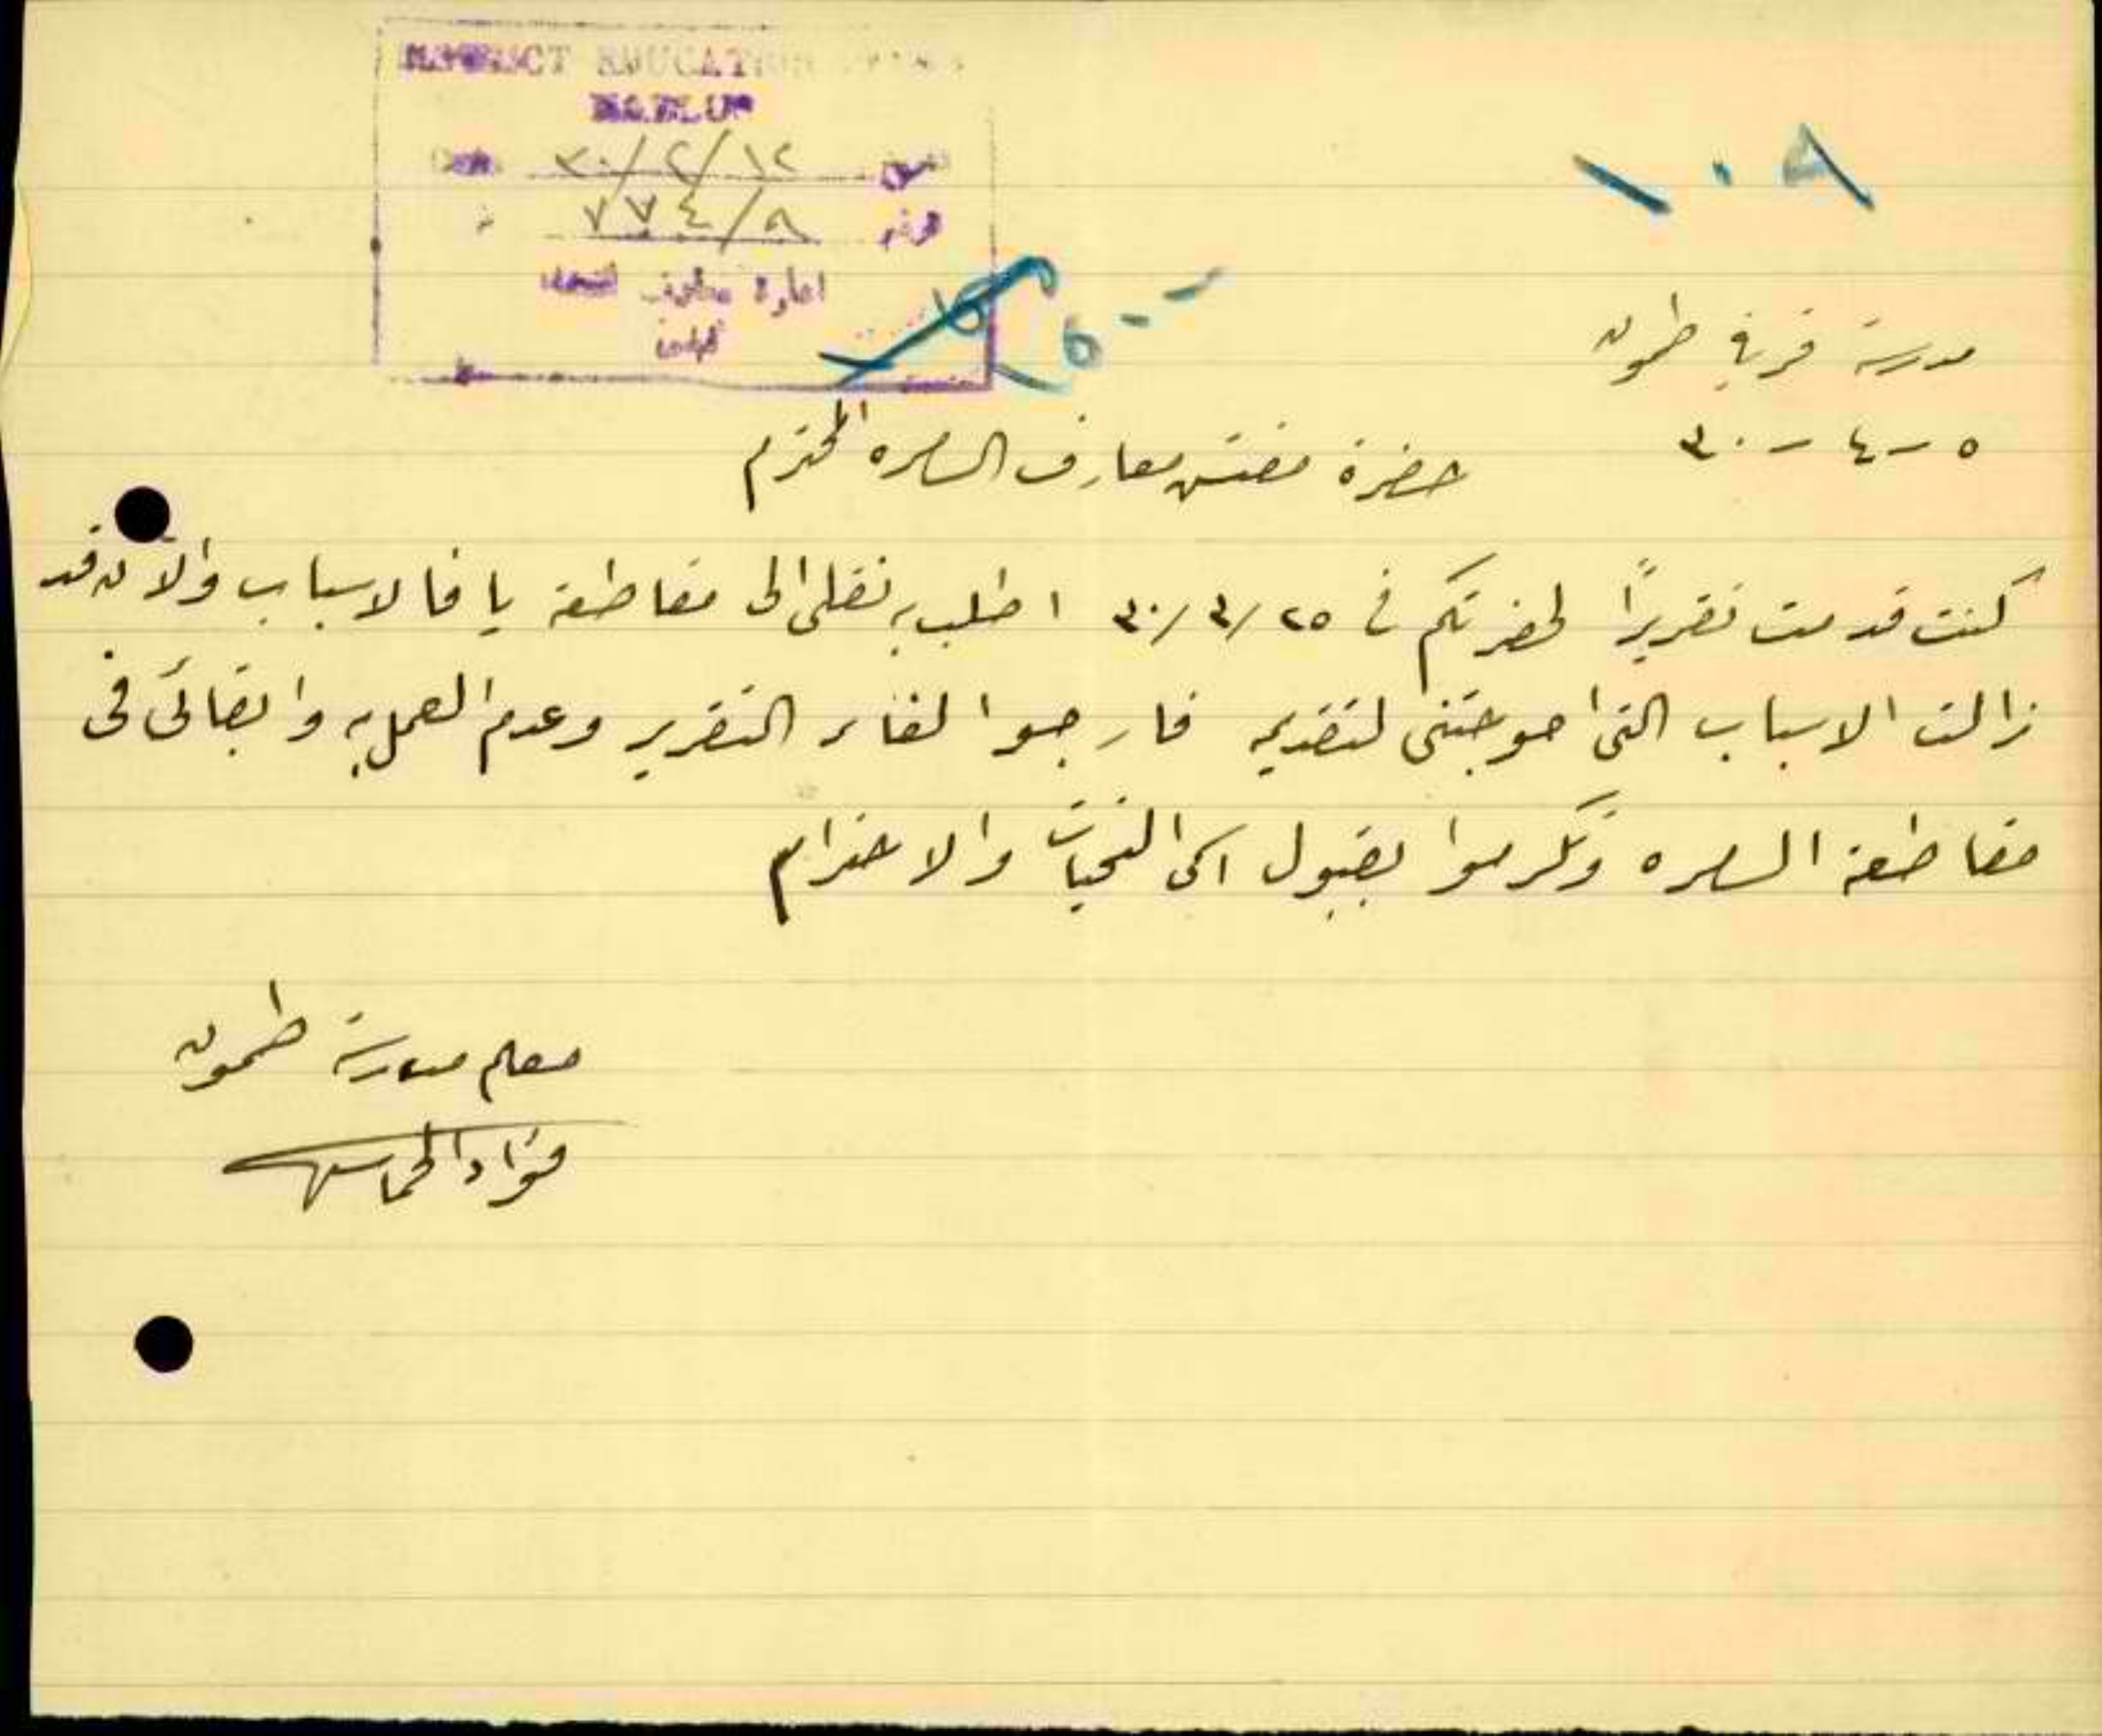 DISTRICT EDUCATION
NABLUS
١٠٨
٧٧٤/٨
ادارة معارف
نابلس
مدرسة قرية طمون
٥ - ٤ - ٣٠
حضرة مفتش معارف السامره المحترم
كنت قدمت تقريرًا لحضرتكم في ٢٥/٣/٣٠ اطلب به نقلي الى مقاطعة يافا لاسباب والآن قد
زالت الاسباب التي احوجتني لتقديمه فارجوا الغاء التقرير وعدم العمل به وابقائي في
مقاطعة السامره وتكرموا بقبول اسمى التحيات والاحترام
معلم مدرسة طمون
فؤاد